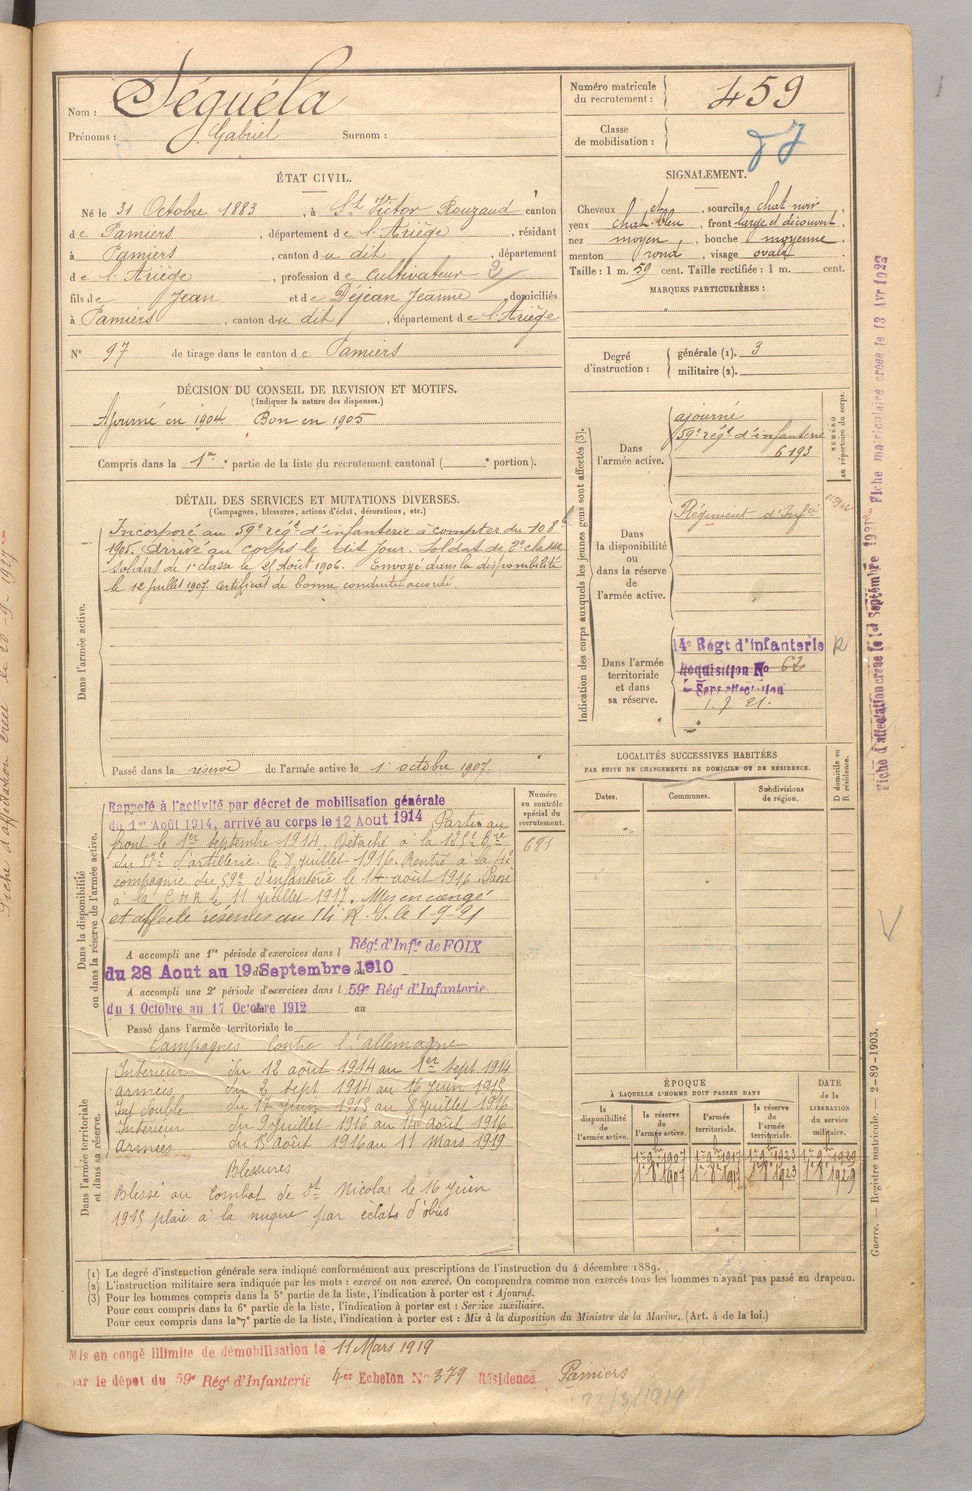 Nom : Séguéla
Prénoms : Gabriel Surnom :
Numéro matricule du recrutement : 459
Classe de mobilisation :
ÉTAT CIVIL.
Né le 31 Octobre 1883, à St Victor Rouzaud canton
de Pamiers, département de l'Ariège, résidant
à Pamiers, canton du dit, département
de l'Ariège, profession de cultivateur
fils de Jean et de Déjean Jeanne, domiciliés
à Pamiers, canton du dit, département de l'Ariège
N° 97 de tirage dans le canton de Pamiers
SIGNALEMENT.
Cheveux et sourcils chat. noir,
yeux chat. bleu, front large et découvert,
nez moyen, bouche moyenne,
menton rond, visage ovale
Taille : 1 m. 59 cent. Taille rectifiée : 1 m. cent.
MARQUES PARTICULIÈRES :
Degré d'instruction : générale (1). 3
militaire (2).
DÉCISION DU CONSEIL DE REVISION ET MOTIFS.
(Indiquer la nature des dispenses.)
Ajourné en 1904 Bon en 1905
Compris dans la 1re partie de la liste du recrutement cantonal ( e portion).
DÉTAIL DES SERVICES ET MUTATIONS DIVERSES.
(Campagnes, blessures, actions d'éclat, décorations, etc.)
Dans l'armée active.
Incorporé au 59e régt d'infanterie à compter du 10 8bre
1905. Arrivé au corps le dit jour. Soldat de 2e classe
Soldat de 1e classe le août 1906. Envoyé dans la disponibilité
le 12 juillet 1907. Certificat de bonne conduite accordé
Passé dans la réserve de l'armée active le 1 octobre 1907.
Indication des corps auxquels les jeunes gens sont affectés (3).
NUMÉRO au répertoire du corps.
Dans l'armée active.
ajourné
59e régt d'infanterie
6193
Dans la disponibilité ou dans la réserve de l'armée active.
Régiment d'Infie
Dans l'armée territoriale et dans sa réserve.
14e Régt d'infanterie R
Réquisition No 62
Sans affectation
1.9.21.
Dans la disponibilité ou dans la réserve de l'armée active.
Rappelé à l'activité par décret de mobilisation générale
du 1er Août 1914, arrivé au corps le 12 Aout 1914 Parti au
front le 1er septembre 1914. Détaché à la 125e Bie
du 57e d'artillerie le 8 juillet 1916. Rentré à la
compagnie du 59e d'infanterie le 14 août 1916. Passé
à la C H R le 11 juillet 1917. Mis en congé
et affecté réserves au 14e R. I. le 1-9-21
Numéro au contrôle spécial du recrutement.
681
A accompli une 1re période d'exercices dans l Régt d'Infie de FOIX
du 28 Aout au 19 Septembre 1910
A accompli une 2e période d'exercices dans l 59e Régt d'Infanterie
du 1 Octobre au 17 Octobre 1912
Passé dans l'armée territoriale le
Dans l'armée territoriale et dans sa réserve.
Campagnes Contre l'allemagne
Intérieur du 12 août 1914 au 1er Sept 1914
armées du 2 sept 1914 au 16 juin 1915
Inf double du 17 juin 1915 au 8 juillet 1916
Intérieur du 9 juillet 1916 au août 1916
Armées du 15 août 1916 au 11 Mars 1919
Blessures
Blessé au Combat de St Nicolas le 16 juin
1915 plaie à la nuque par éclats d'obus
LOCALITÉS SUCCESSIVES HABITÉES
PAR SUITE DE CHANGEMENTS DE DOMICILE OU DE RÉSIDENCE.
Dates. Communes. Subdivisions de région. D domicile ou R résidence.
ÉPOQUE
À LAQUELLE L'HOMME DOIT PASSER DANS
la disponibilité de l'armée active. la réserve de l'armée active. l'armée territoriale. la réserve de l'armée territoriale.
DATE de la LIBÉRATION du service militaire.
(1) Le degré d'instruction générale sera indiqué conformément aux prescriptions de l'instruction du 4 décembre 1889.
(2) L'instruction militaire sera indiquée par les mots : exercé ou non exercé. On comprendra comme non exercés tous les hommes n'ayant pas passé au drapeau.
(3) Pour les hommes compris dans la 5e partie de la liste, l'indication à porter est : Ajourné.
Pour ceux compris dans la 6e partie de la liste, l'indication à porter est : Service auxiliaire.
Pour ceux compris dans la 7e partie de la liste, l'indication à porter est : Mis à la disposition du Ministre de la Marine. (Art. 4 de la loi.)
Mis en congé illimité de démobilisation le 11 Mars 1919
par le dépôt du 59e Régt d'Infanterie 4me Echelon N° 379 Résidence Pamiers
22/3/1919
Fiche d'affectation créée le 1er Septembre 1921 Fiche matriculaire créée le 13 Avr 1922
Guerre. — Registre matricule. — 2-89-1903.